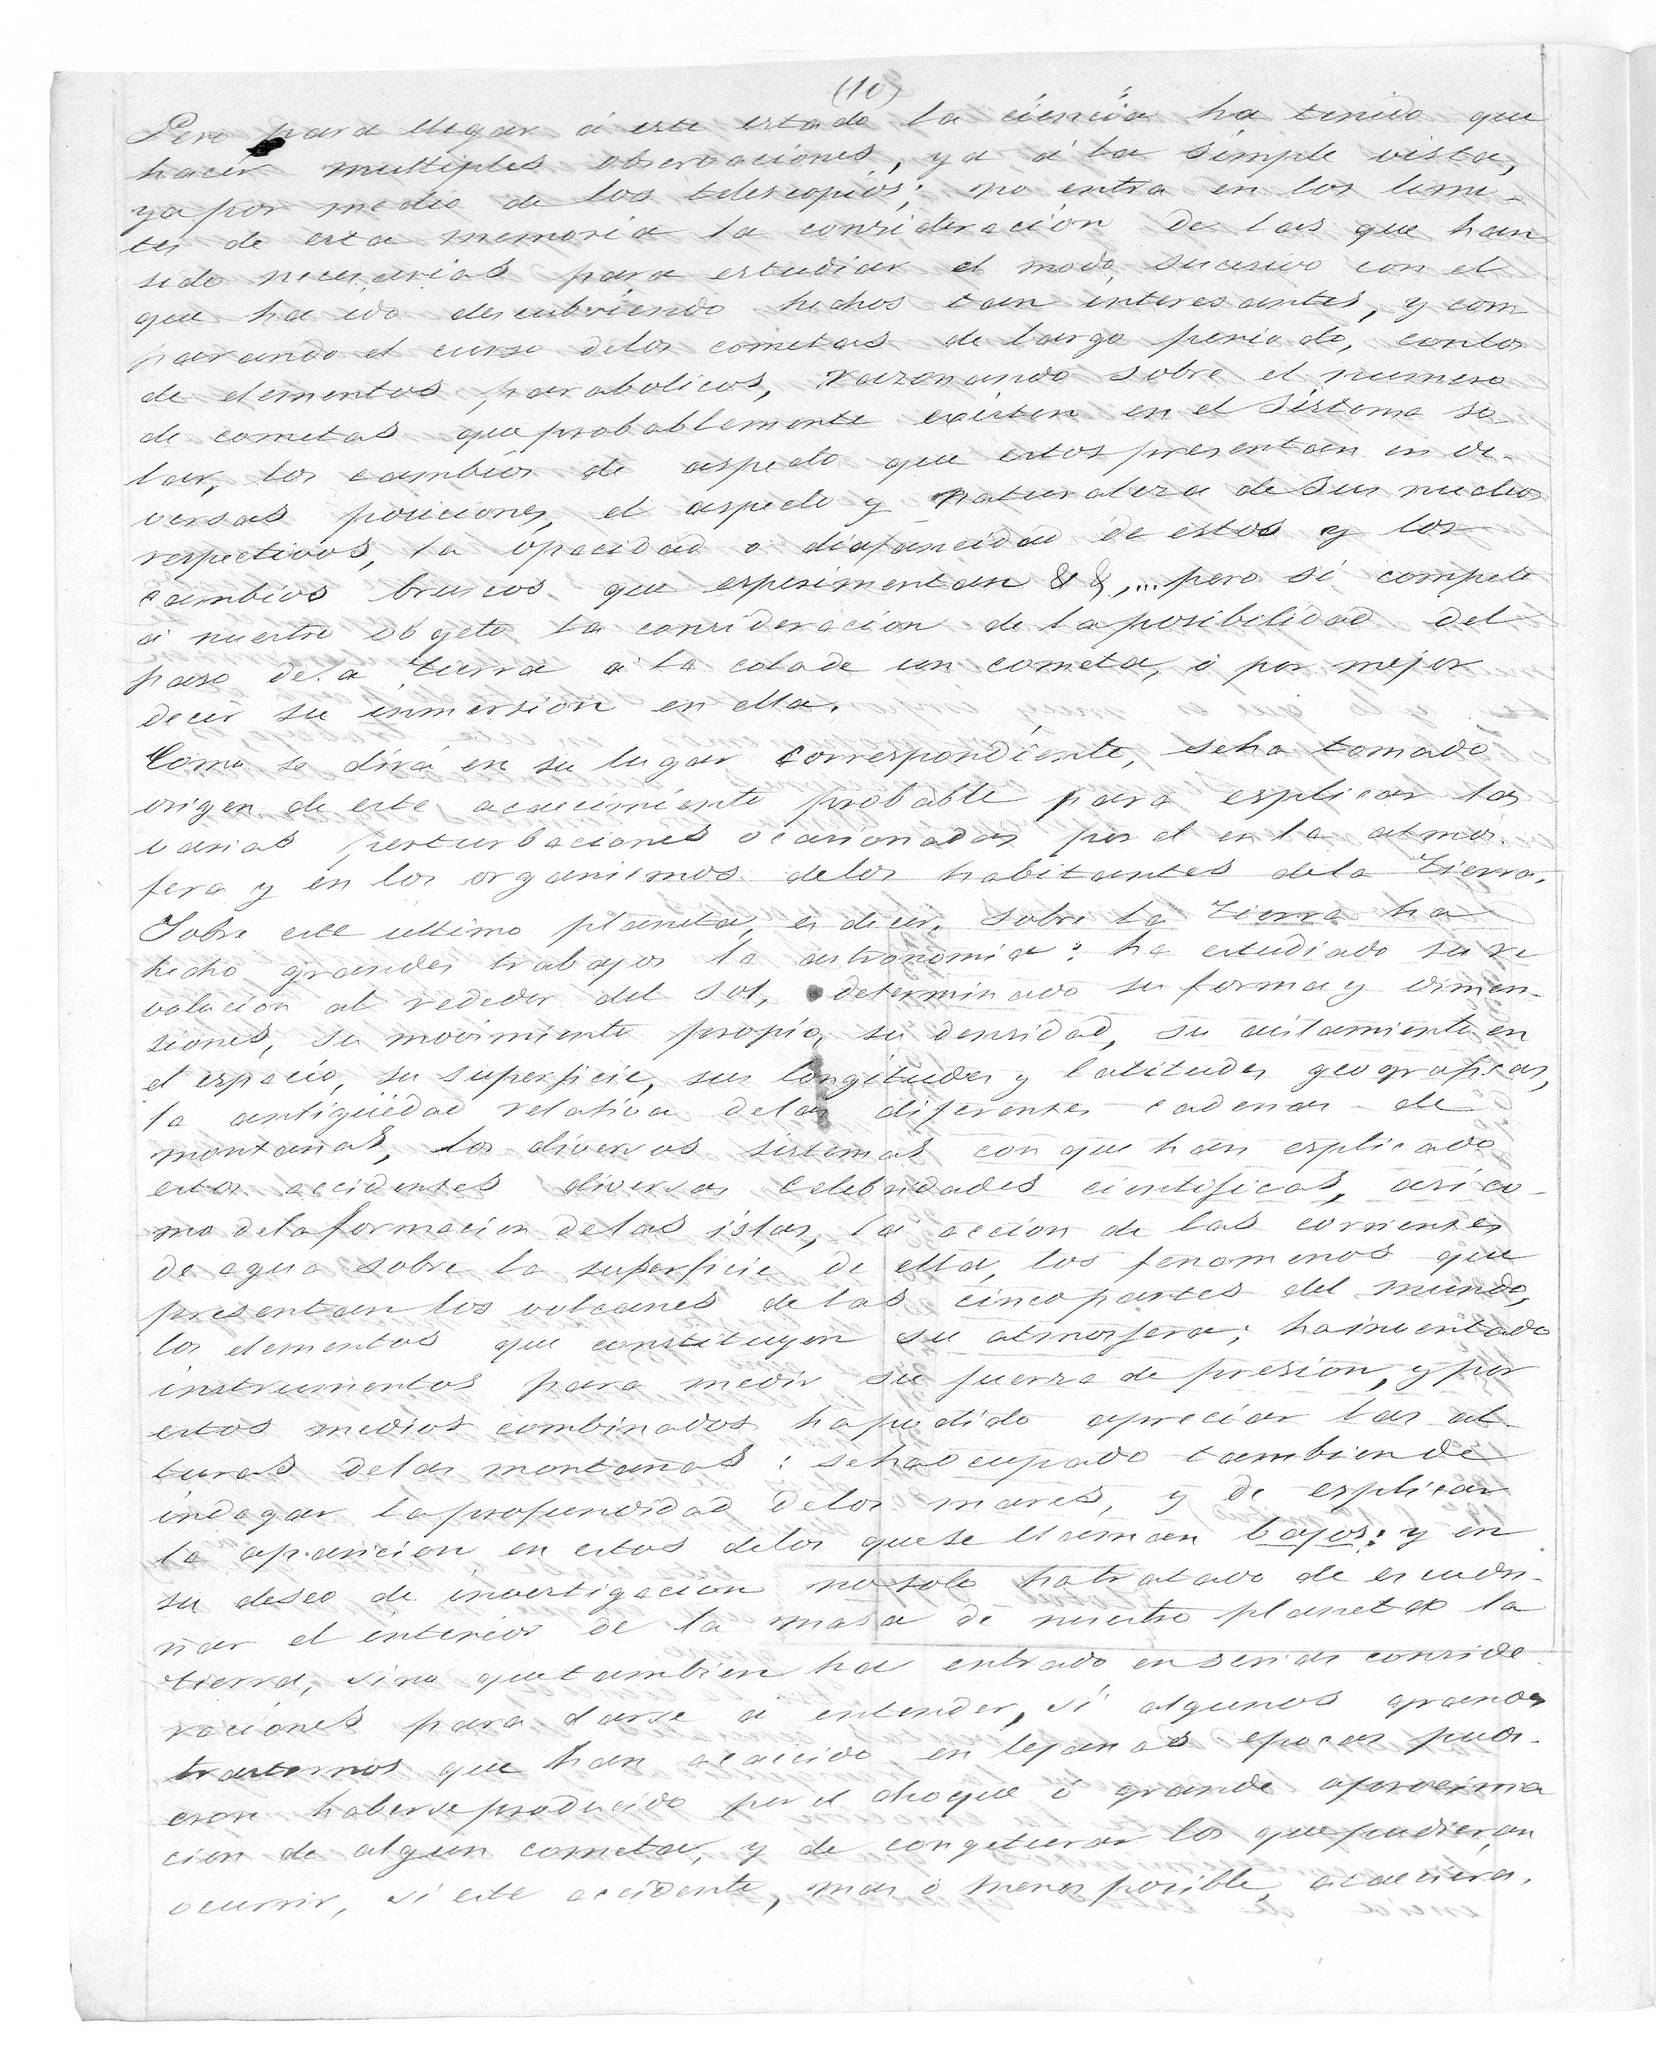 (10)
Pero para llegar á este estado la ciencia ha tenido que
hacer multiples observaciones, ya á la simple vista,
ya por medio de los telescopios; no entra en los limi-
tes de esta memoria la consideracion de las que han
sido necesarias para estudiar el modo sucesivo con el
que ha ido descubriendo hechos tan interesantes, y com
parando el curso delos cometas de largo periodo, conlos
de elementos parabolicos, razonando sobre el numero
de cometas que probablemente existen en el sistema so-
lar, los cambios de aspecto que estos presentan en di-
versas posiciones, el aspecto y naturaleza de sus nucleos
respectivos, la opacidad o diafaneidad de estos y los
cambios bruscos que esperimentan & &,... pero si compete
á nuestro obgeto la consideracion de la posibilidad del
paso dela tierra á la cola de un cometa, ó por mejor
decir su inmersion en ella.
Como se dirá en su lugar correspondiente, seha tomado
origen de este acaecimiento probable para esplicar las
varias perturbaciones ocasionadas por el en la atmós-
fera y en los organismos delos habitantes dela Tierra.
Sobre este ultimo planeta, es decir, sobre la tierra ha
hecho grandes trabajos la astronomia: ha estudiado su re
volucion al rededor del Sol, determinado su forma y dimen-
siones, su movimiento propio, su densidad, su aislamiento en
el espacio, su superficie, sus longitudes y latitudes geograficas,
la antigüedad relativa delas diferentes cadenas de
montanas, los diversos sistemas con que han esplicado
estos accidentes diversas celebridades cientificas, asi co-
mo dela formacion delas islas, la accion de las corrientes
de agua sobre la superficie de ella, los fenomenos que
presentan los volcanes delas cinco partes del mundo,
los elementos que constituyen su atmosfera; ha inventado
instrumentos para medir su fuerza de presion, y por
estos medios combinados ha podido apreciar las al-
turas delas montanas: seha ocupado tambien de
indagar la profundidad delos mares, y de esplicar
la aparicion en estos delos que se llaman bajos: y en
su deseo de investigacion no solo ha tratado de escudri-
nar el interior de la masa de nuestro planeta la
tierra, sino que tambien ha entrado en serias conside
raciones para darse á entender, si algunos grandes
trastornos que han acaecido en lejanas epocas pudi-
eron haberse producido por el choque ó grande aproxima
cion de algun cometa, y de congeturar los que pudieran
ocurrir, si este accidente, mas ó menos posible, acaeciera.